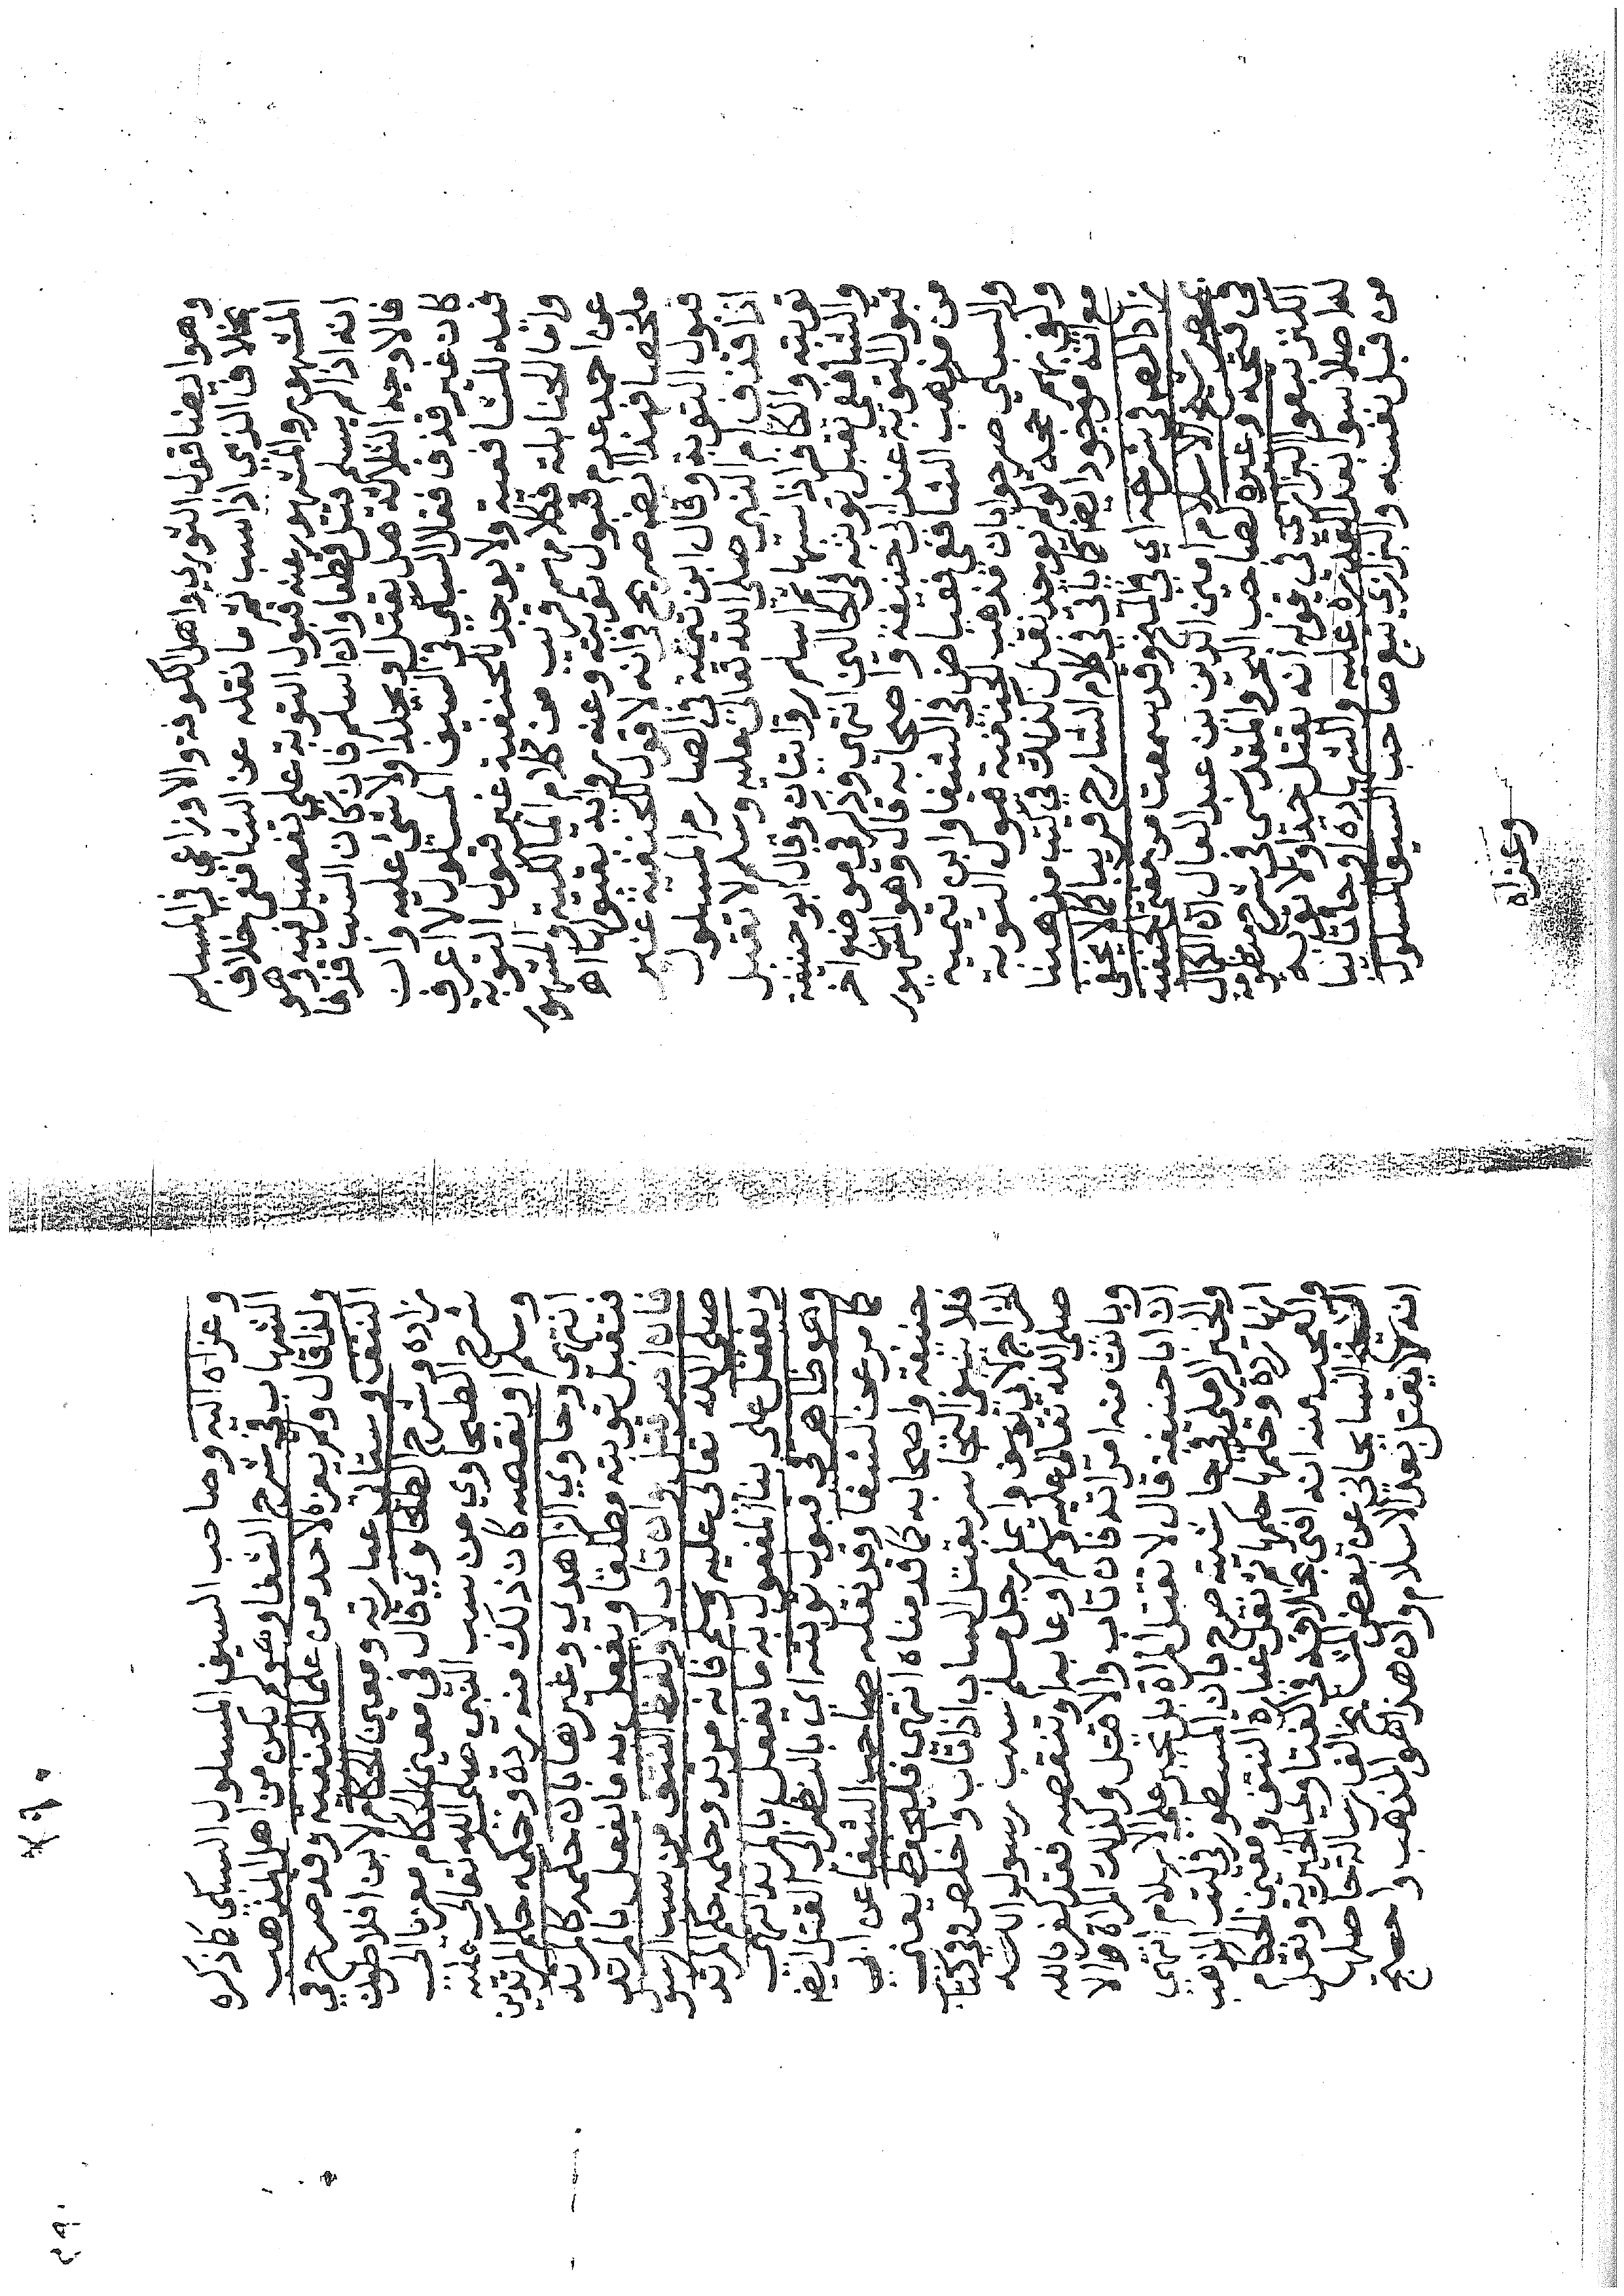 وهو ايضا قول الثوري واهل الكوفة والاوزاعي في المسلم
بخلاف الذي اذا سب ثم ما نقله عن الشافعي خلاف
المشهور والمشهور عنه قبول التوبة على تفصيل فيه وهو
انه اذا لم يسلم قتل قطعا وان اسلم فان كان السب قذفا
فالاوجه الثلاثة هل يقتل او يجلد اولا شئ عليه وان
كان غير قذف فقال السبكي في السيف المسلول لا اعرف
فيه للشافعية ولا يوجد للحنفية غير قبول التوبة
واما الحنابلة فكلامهم قريب من كلام المالكية والمشهور
عن احمد عدم قبول توبته وعنه رواية بقبولها اه
ملخصا فهذا ايضه صريح في انه لا قول للحنفية غير
قبول التوبة وقال ابن تيمية في الصارم المسلول
اذا قذف ام النبي صلى الله تعالى عليه وسلم لا تقبل
توبته والكافر اذا سبها ثم اسلم روايتان وقال ابو حنيفة
والشافعي تقبل توبته في الحالين انتهى وذكر في موضع اخر
قبول التوبة عند ابي حنيفة واصحابه قال وهو المشهور
من مذهب الشافعي فعياض في الشفا وابن تيمية
والسبكي صرحوا بان مذهب الحنفية قبول التوبة
وكفى بهم حجة لو لم يوجد نقل كذلك في كتب مذهبنا
مع انه موجود ايضا كما ياتي في كلام الشارح قريبا كما لا يخفى
زاد المص في شرحه اي في المنح وقد سمعت من مفتي الحنفية
بمصر شيخ الاسلام امين الدين بن عبد العال ان الكمال
في فتحه وغيره لصاحب البحر والمقدسي في شرح نظم
الكنز تبعوا البزازي في قوله انه يقتل حدا ولا توبة
له اصلا سواء بعد القدرة عليه والشهادة او جا تائبا
من قبل نفسه والبزازي تبع صاحب السيف المسلول
وعزاه
وعزاه اليه وصاحب السيف المسلول السبكي كما ذكره
الشهاب في شرح الشفا وهو لم يكن من اهل المذهب
ولذا قال ولم يعزه لاحد من علماء الحنفية وقد صرح في
النتف وستاتي عبارته ومعين الحكام لابن افلاطون
زاده وشرح الطحاوي قال في معين الحكام معزيا الى
شرح الطحاوي من سب النبي صلى الله تعالى عليه
وسلم او نقصه كان ذلك منه ردة وحكمه حكم المرتدين
انتهى وحاوي الزاهدي وغيرها بان حكمه كالمرتد
فتقبل توبته مطلقا ويفعل به ما يفعل بالمرتد
فان اصر قتل وان تاب لا ولفظ النتف من سب الرسول
صلى الله تعالى عليه وسلم فانه مرتد وحكمه حكم المرتد
ويفعل على بناء المفعول به ما يفعل بالمرتد انتهى
وهو ظاهر في قبول توبته اي بالنظر الى القتل ايضا
كما مر عن الشفا وقد نقله صاحب الشفا عن ابي
حنيفة واصحابه كما قدمناه انتهى فليحفظ يعني
فلا ينبغي التجاسر بقتل الساب اذا تاب واخلص وفي كتاب
الخراج لابي يوسف وايما رجل مسلم سب رسول الله
صلى الله تعالى عليه وسلم او عابه او تنقصه فقد كفر بالله
وبانت منه امراته فان تاب والا قتل وكذلك المراة الا
ان ابا حنيفة قال لا تقتل المراة بل تجبر على الاسلام انتهى
والخير الرملي في حاشيته صرح بان المسطور في كتب المذهب
انها ردة وحكمها حكمها ثم نقل عبارة النتف ومعين الحكام
والعجب منه انه افتى بخلافه في الفتاوى الخيرية ونقل
الشيخ السايحاني عن بعض المشايخ رسالة حاصلها
انه لا يقتل بعد الاسلام وان هذا هو المذهب واحتج